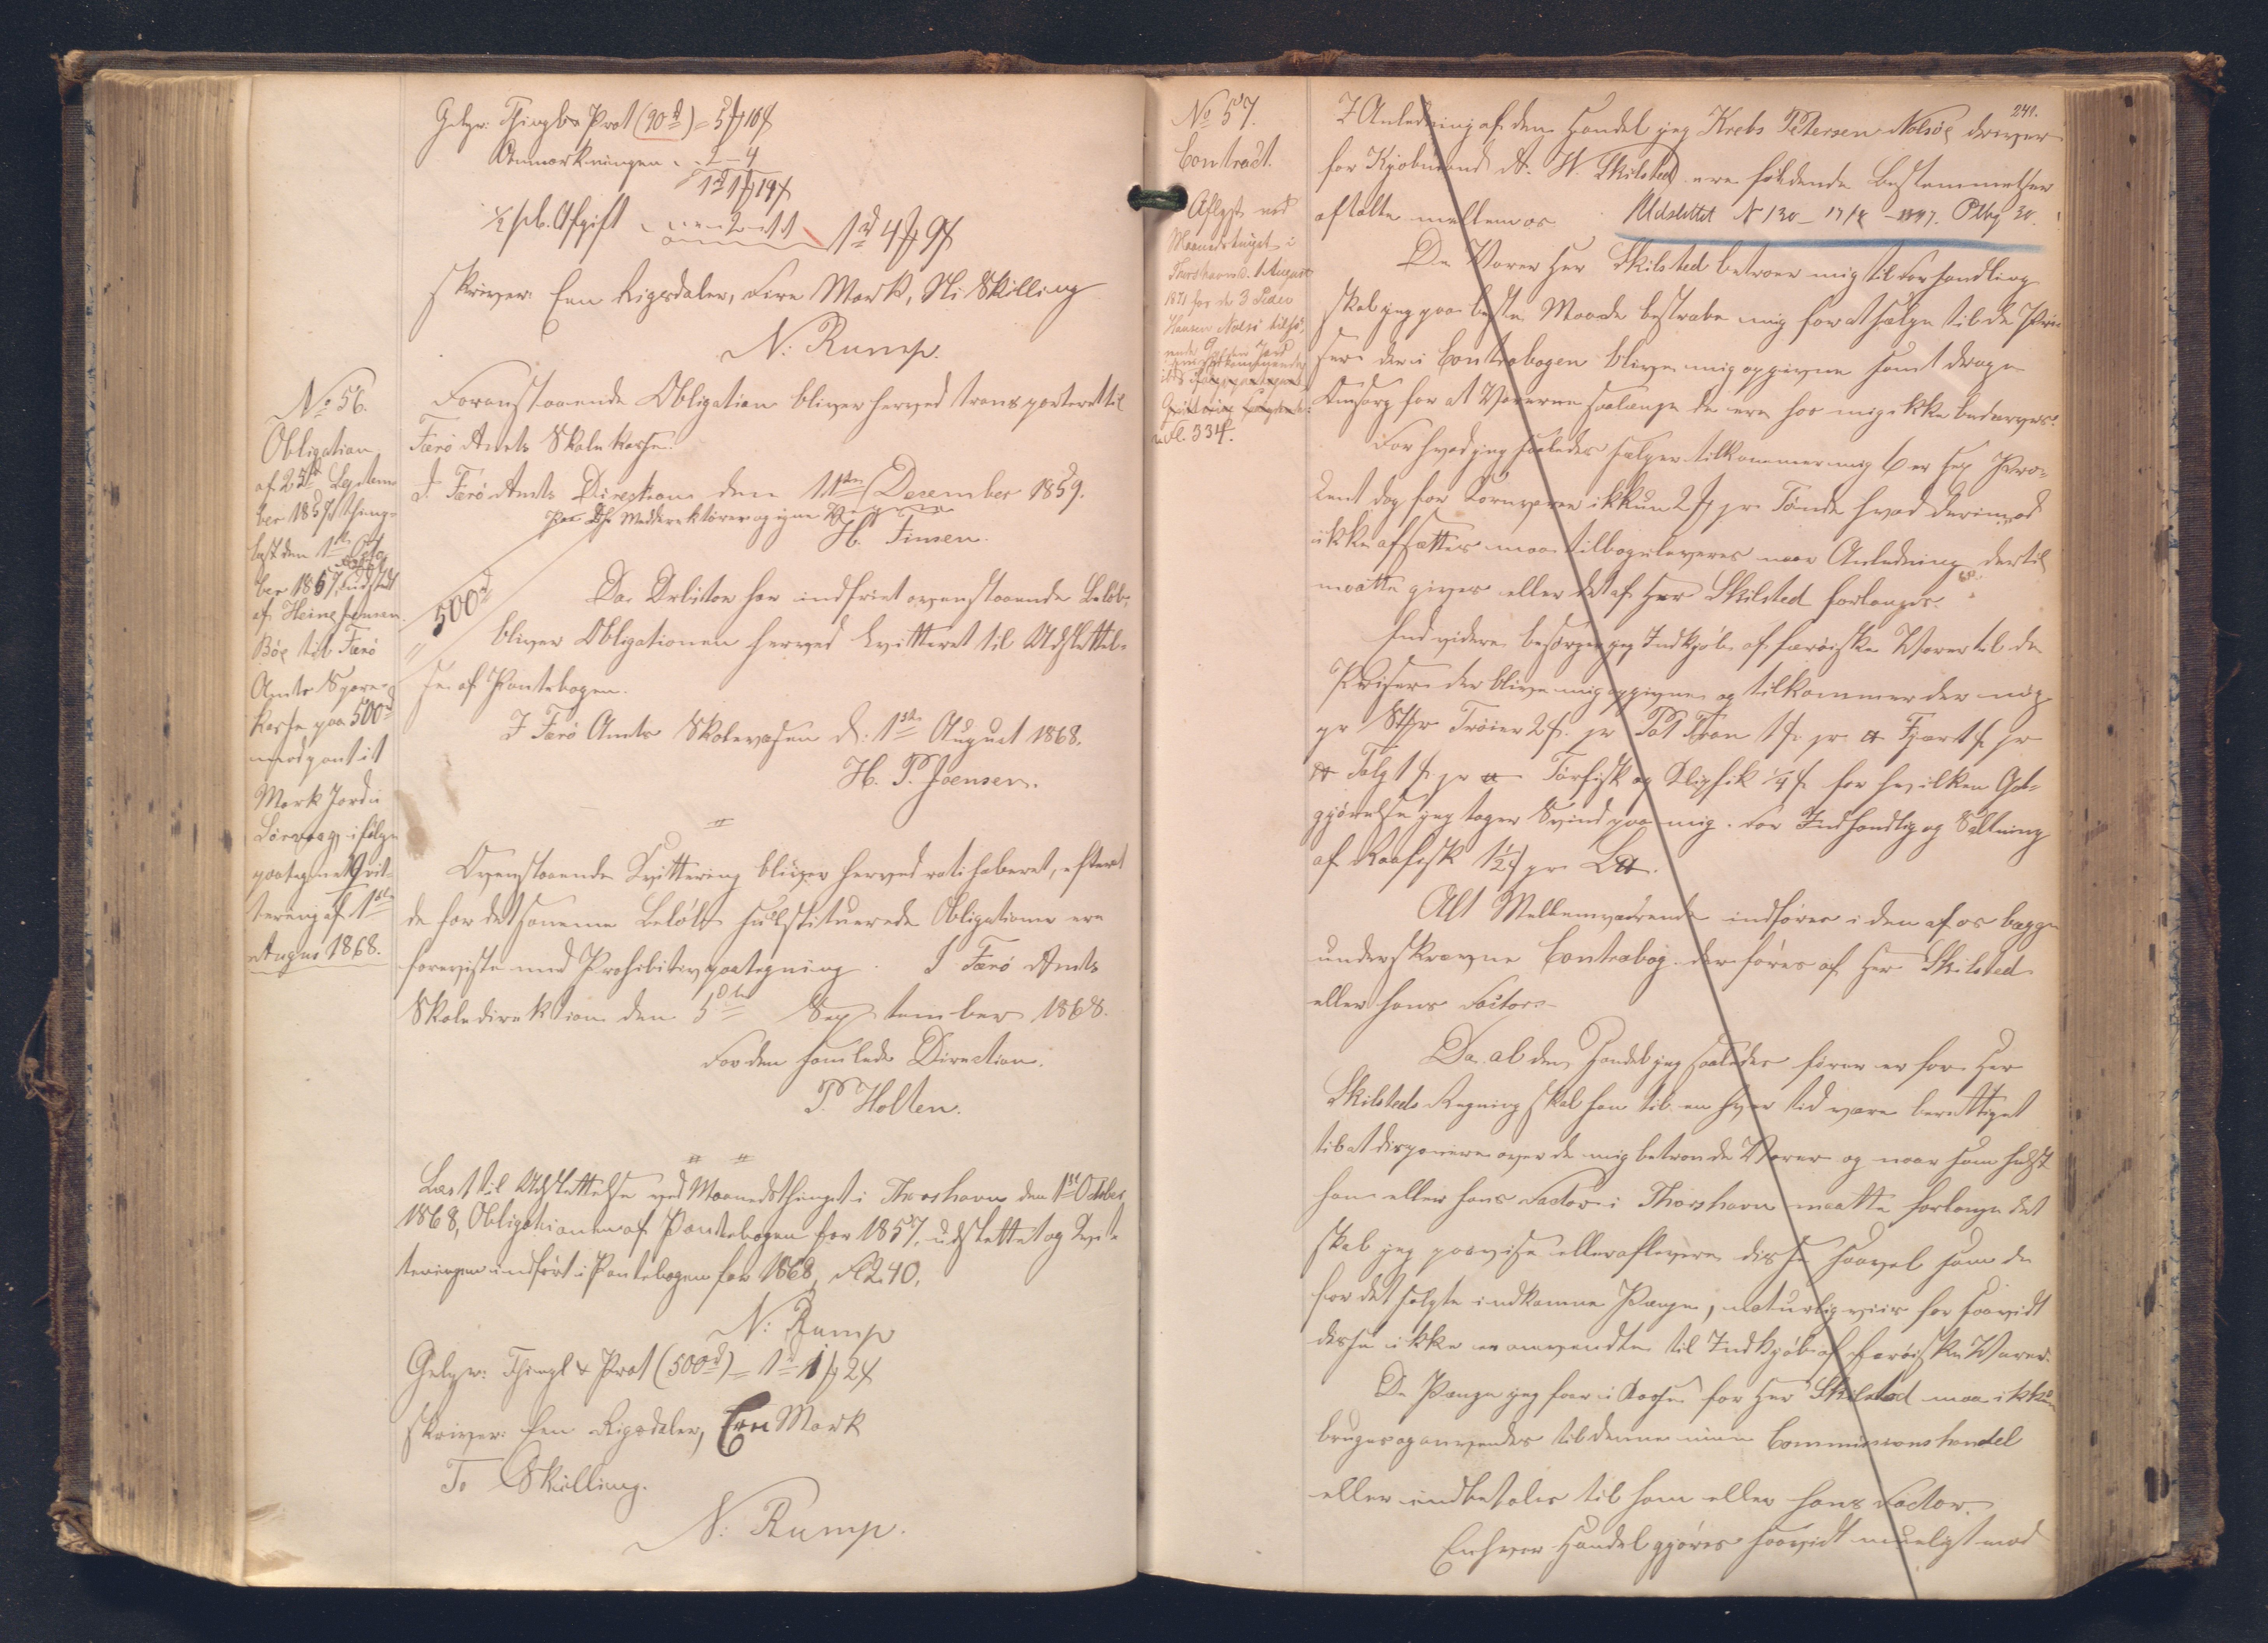 Gebyr: Thingl & Prot (90 d) = 5 ₰ 10 ß
Anmærkningen " - 2 - 4
1 d 1 ₰ 14 ß
½ pCt. Afgift - - - 2 - 11 1 d 4 ₰ 9 ß
skriver: Een Rigsdaler, Fire Mark, Ni Skilling
N: Rump.
No 56.
Obligation
af 23d Septem-
ber 1857 thing-
læst den 1ste Octo-
ber 1857, udstedt
af Heine Joensen
Bøe til Færø
Amts Spare-
kasse paa 500 d
mod pant i 1
Mark Jord i
Sørvaag, ifølge
paategnet Qvit-
tering af 1ste
August 1868.
Foranstaaende Obligation bliver herved transporteret til
Færø Amts Skolekasse.
I Færø Amts Direktion den 11te December 1859.
Paa Medderektørers og egne Vegne
H. Finsen.
500 d
Da Debitor har indfriet ovenstaaende Beløb,
bliver Obligationen herved kvitteret til Udslettel-
se af Pantebogen.
I Færø Amts Skolevæsen d: 1ste August 1868.
H. P. Joensen.
Ovenstaaende Kvittering bliver herved ratihaberet, efter
de for det samme Beløb substituerede Obligationer ere
foreviste med Prohibitivpaategning. I Færø Amts
Skoledirektion den 5te September 1868.
For den samlede Direction.
P. Holten.
Læst til Udslettelse ved Maanedsthinget i Thorshavn den 1ste October
1868, Obligationen af Pantebogen for 1857, udslettet og Kvit-
teringen indført i Pantebogen for 1868, Fol. 240.
N: Rump
Gebyr: Thingl & Prot (500 d) = 1 d 1 ₰ 2 ß
skriver: Een Rigsdaler, Een Mark
To Skilling.
N: Rump.
241.
No 57.
Contract.
Aflyst ved
Maanedstinget i
Thorshavn d. 1 August
1871 for de 3
Hansen Nolsø tilhø-
rende Gylden Jord
Fol. 334.
I Anledning af den Handel jeg Krebs Petersen Nolsøe driver
for Kjøbmand A. W. Skilsted ere følgende Bestemmelser
aftalte mellem os Udslettet N 130 - 17/8 - 1897. Ptbg 30.
De Varer Her Skilsted betroer mig til Forhandling
skal jeg paa beste Maade bestræbe mig for at sælge til de Pri-
ser der i Contrabogen blive mig opgivne samt drage
Omsorg for at Varerne saalænge de ere hos mig ikke bedærves.
For hvad jeg saaledes sælger tilkommer mig 6 er sex Pro-
cent dog for Kornvarer ikkun 2 ₰ pr. Tønde hvad derimod
ikke afsættes maa tilbageleveres naar Anledning dertil
maatte gives eller det af Her Skilsted forlanges.
Endvidere besørger jeg Indkjøb af færøiske Varer til de
Priser der blive mig opgivne og tilkommer der mig
pr Stk Trøier 2 ß. pr Pot Tran 1 ß. pr. ℔ Fjær 1 ß pr
℔ Talg 1 ß. pr ℔ Tørfisk og Klipfisk ¼ ß. for hvilken God-
gjørelse jeg tager Svind paa mig. For Indhandlig og Saltning
af Raafisk 1½ ß pr L℔.
Alt Mellemværende indføres i den af os begge
underskrevne Contrabog der føres af Her Skilsted
eller hans Factor.
Da al den Handel jeg saaledes fører er for Her
Skilsteds Regning skal han til en hver tid være berettiget
til at disponere over de mig betroede Varer og naar som helst
han eller hans Factor i Thorshavn maatte forlange det
skal jeg paavise eller aflevere disse saavel som de
for det solgte indkomne Penge, naturligviis for saavidt
disse ikke er anvendte til Indkjøb af færøiske Varer.
De Penge jeg faar i Kasse for Her Skilsted maa ikkun
bruges og anvendes til denne min Commissionshandel
eller indbetales til ham eller hans Factor.
Enhver Handel gjøres saavidt mueligt mod